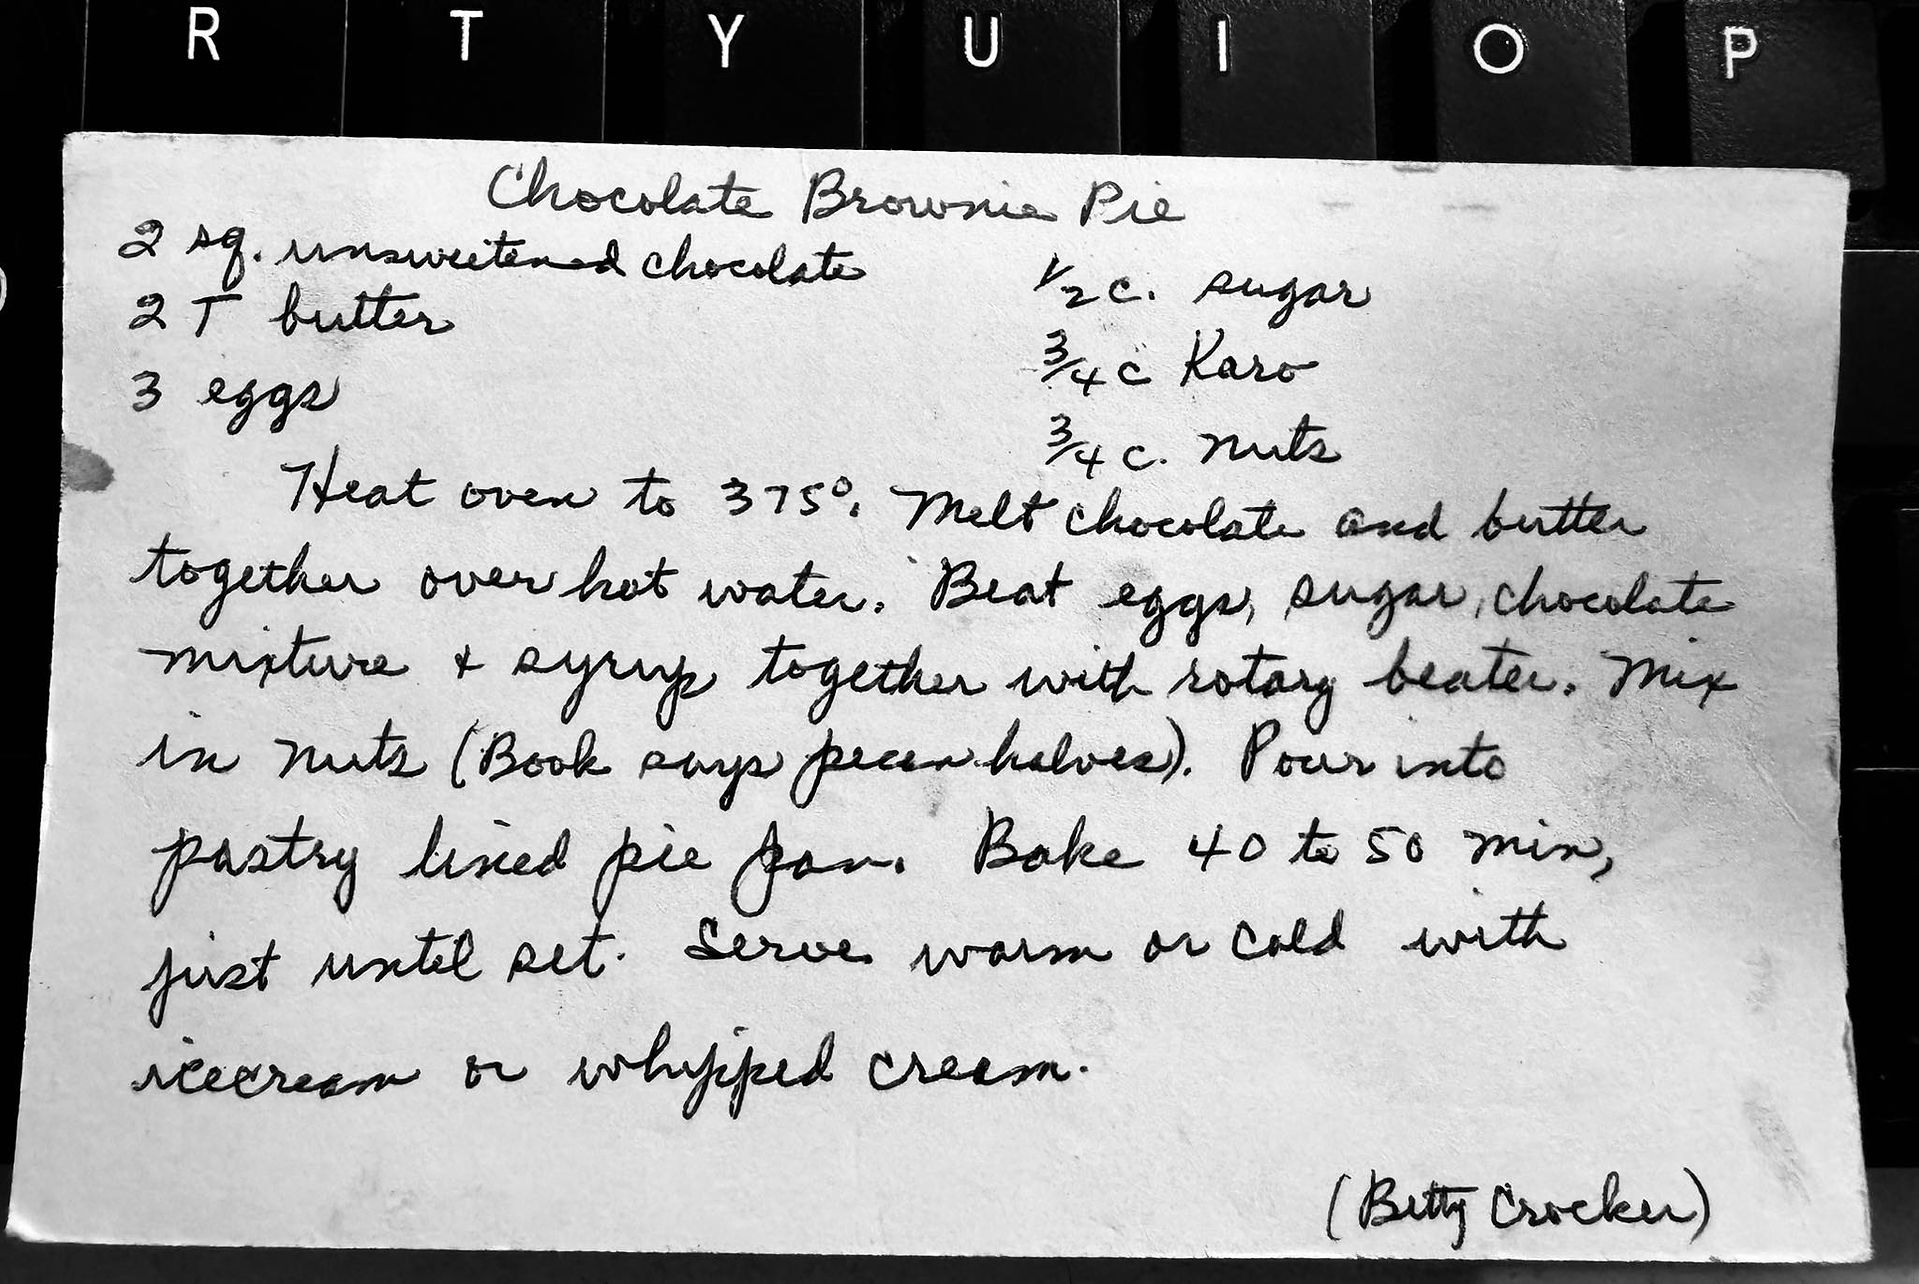 R T Y U I O P
Chocolate Brownie Pie
2 sq. unsweetened chocolate
2 T butter
3 eggs
1/2 c. sugar
3/4 c Karo
3/4 c. nuts
Heat oven to 375°. Melt chocolate and butter
together over hot water. Beat eggs, sugar, chocolate
mixture & syrup together with rotary beater. Mix
in nuts (Book says pecan halves). Pour into
pastry lined pie pan. Bake 40 to 50 min,
just until set. Serve warm or cold with
icecream or whipped cream.
(Betty Crocker)